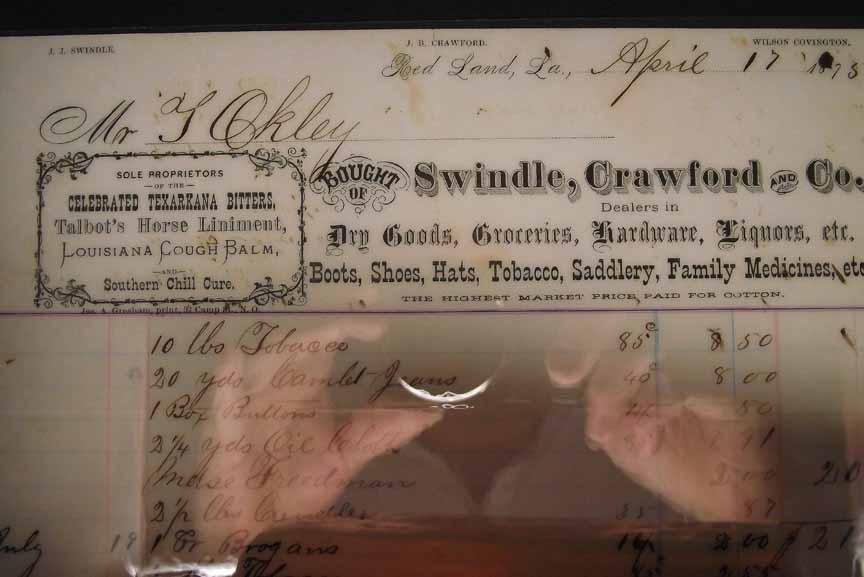 J. J. SWINDLE.
J. B. CRAWFORD.
WILSON COVINGTON.
Red Land, La., April 17 1873
Mr T Okley
SOLE PROPRIETORS
—OF THE—
CELEBRATED TEXARKANA BITTERS,
Talbot's Horse Liniment,
LOUISIANA COUGH BALM,
—AND—
Southern Chill Cure.
Jas. A. Gresham, print, Camp St., N.O.
BOUGHT OF Swindle, Crawford AND Co.
Dealers in
Dry Goods, Groceries, Hardware, Liquors, etc.
Boots, Shoes, Hats, Tobacco, Saddlery, Family Medicines, etc
THE HIGHEST MARKET PRICE PAID FOR COTTON.
10 lbs Tobacco 85c 8 50
20 yds Camlet Jeans 40c 8 00
1 Box Buttons 50
2 1/4 yds Oil Cloth
Mdse Freedman 2 00 20
2 1/2 lbs Candles 35 87
July 19 1 Pr Brogans 2 00 21